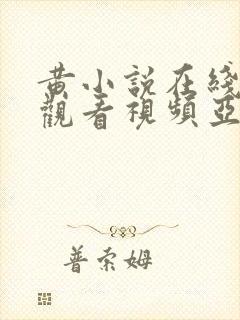 黄小說在綫
觀看視頻亞
普索姆